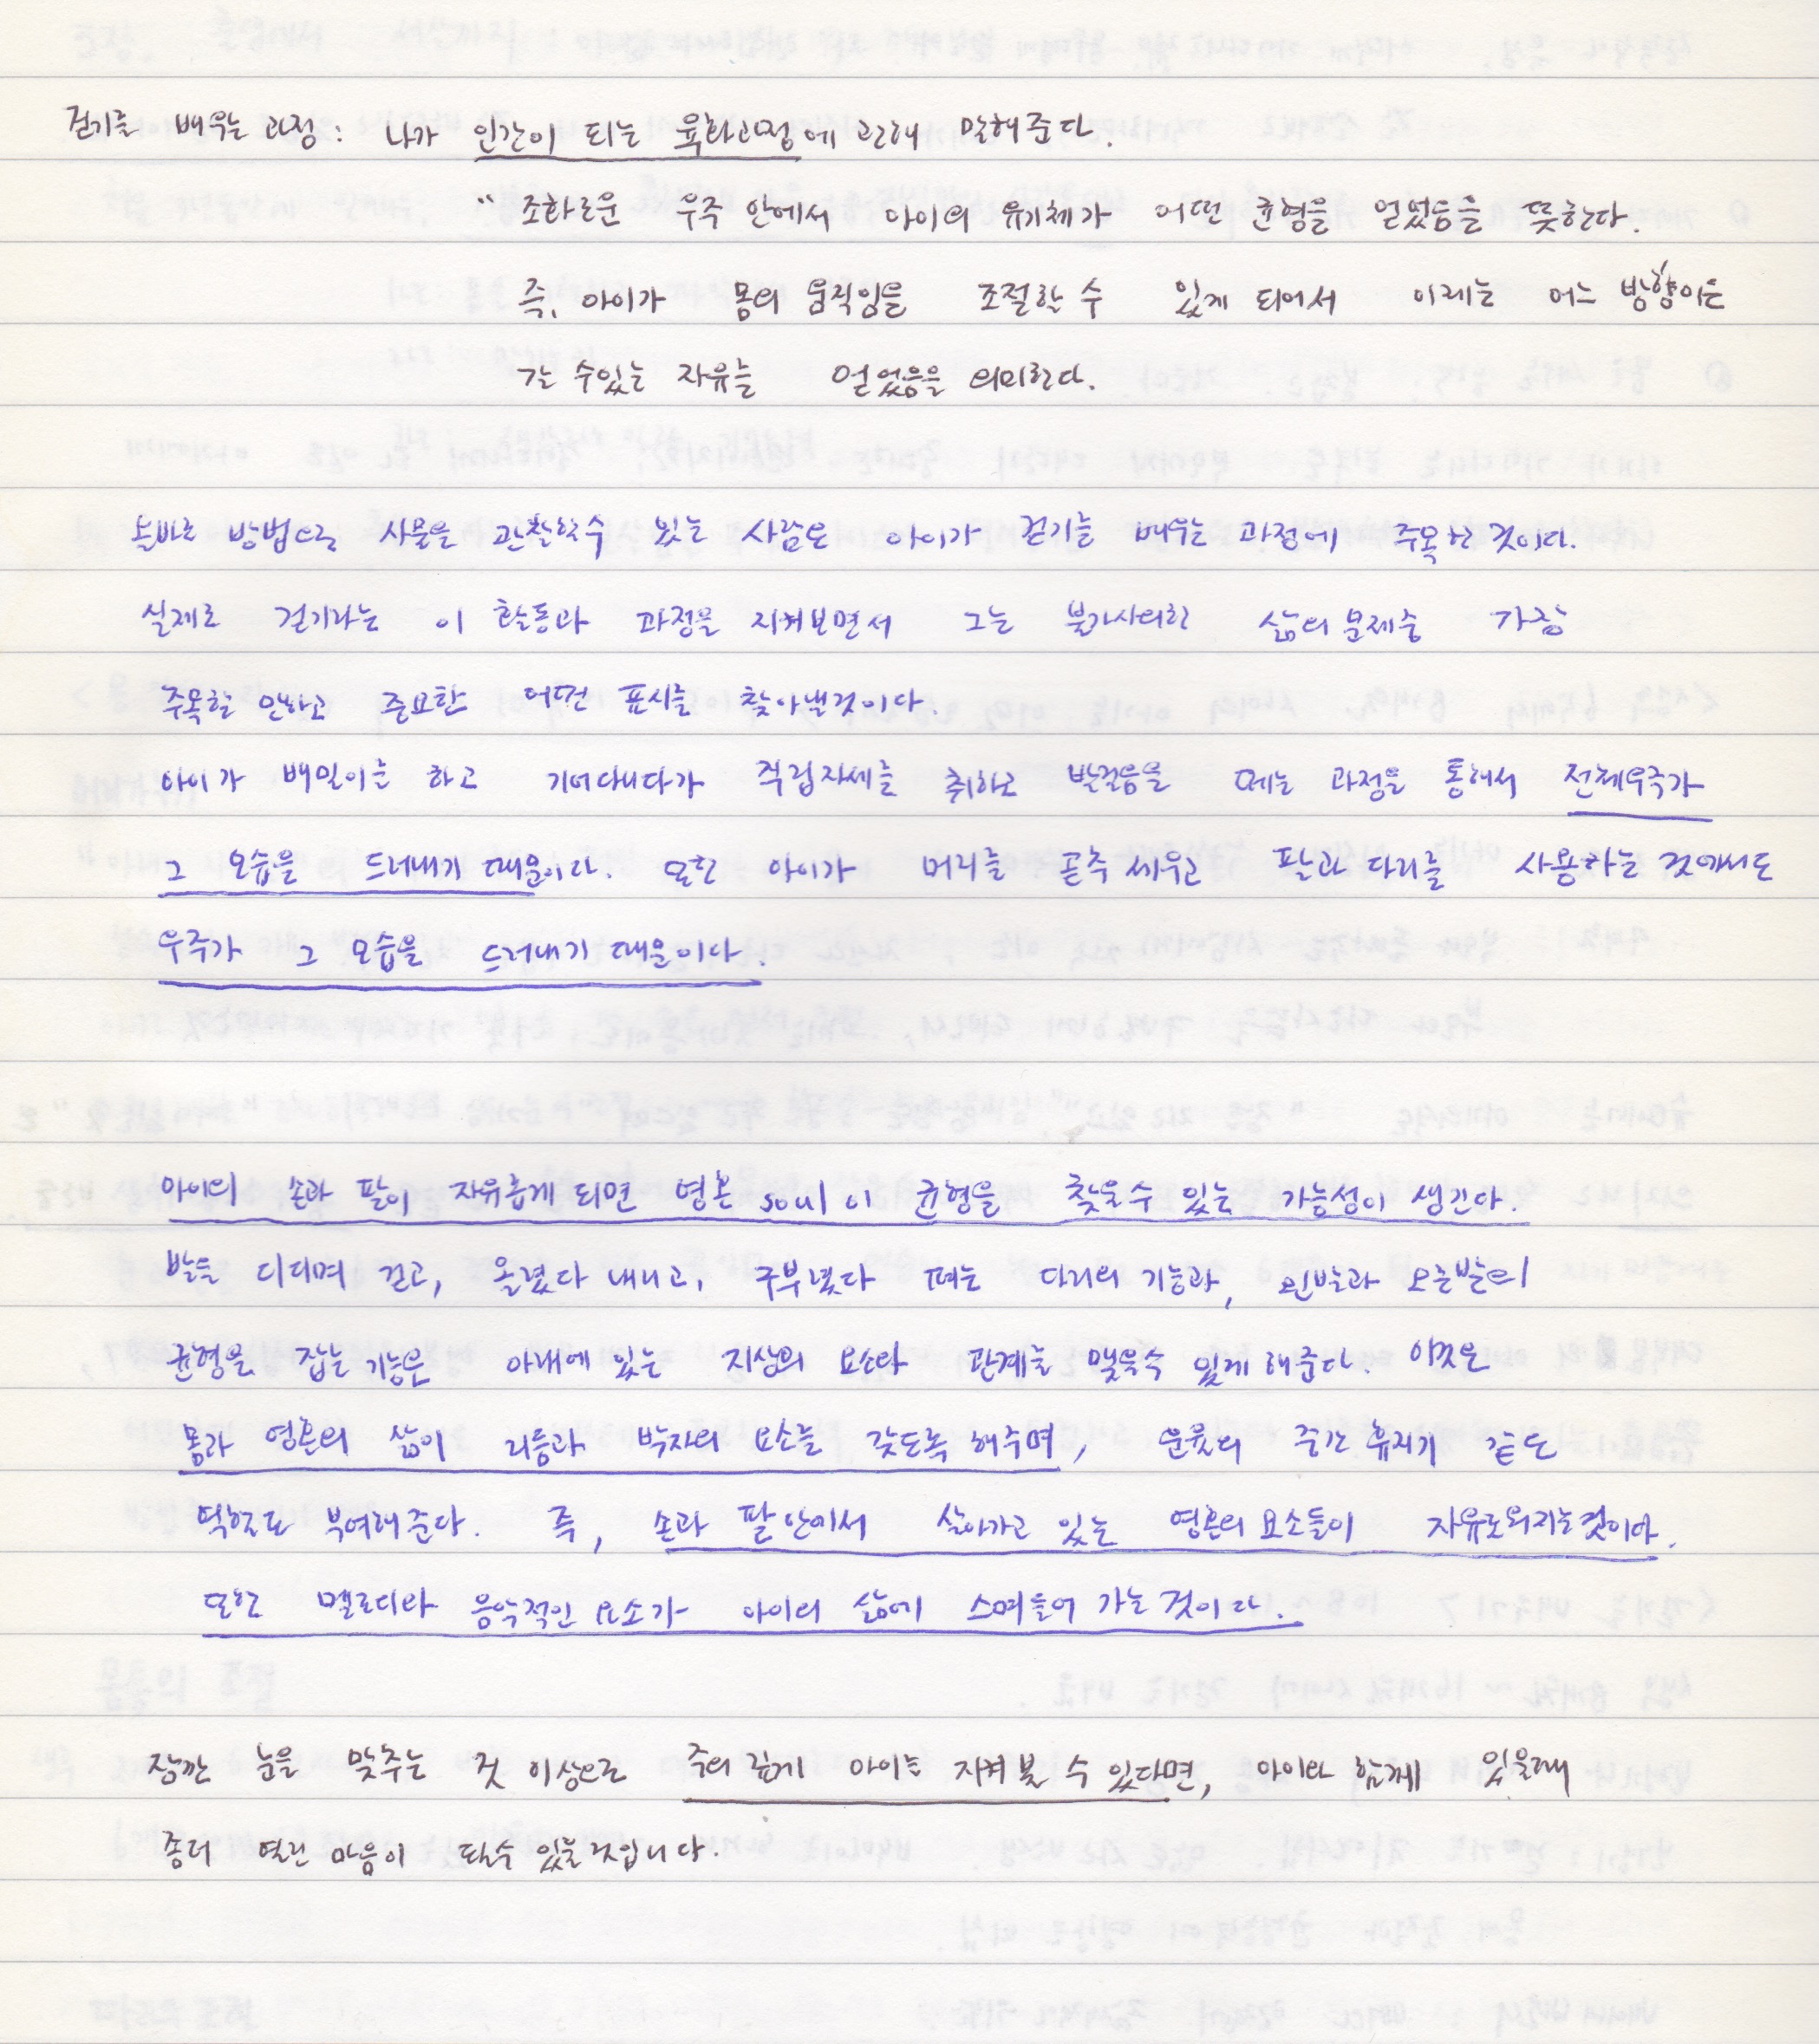 걷기를 배우는 과정: 나가 인간이 되는 육화과정에 관해 말해준다.
" 조화로운 우주 안에서 아이의 유기체가 어떤 균형을 얻었음을 뜻한다.
즉, 아이가 몸의 움직임을 조절할 수 있게 되어서 이제는 어느 방향이든
갈 수있는 자유를 얻었음을 의미한다.
올바른 방법으로 사물을 관찰할수 있는 사람은 아이가 걷기를 배우는 과정에 주목할 것이다.
실제로 걷기라는 이 활동과 과정을 지켜보면서 그는 불가사의한 삶의 문제중 가장
주목할 만하고 중요한 어떤 표시를 찾아낼것이다.
아이가 배밀이를 하고 기어다니다가 직립자세를 취하고 발걸음을 떼는 과정을 통해서 전체우주가
그 모습을 드러내기 때문이다. 또한 아이가 머리를 곧추 세우고 팔과 다리를 사용하는 것에서도
우주가 그 모습을 드러내기 때문이다.
아이의 손과 팔이 자유롭게 되면 영혼 soul이 균형을 찾을수 있는 가능성이 생긴다.
발을 디디며 걷고, 올렸다 내리고, 구부렸다 펴는 다리의 기능과, 왼발과 오른발의
균형을 잡는 기능은 아래에 있는 지상의 요소와 관계를 맺을수 있게 해준다. 이것은
몸과 영혼의 삶이 리듬과 박자의 요소를 갖도록 해주며, 운율의 중간 휴지기 같은
역할도 부여해준다. 즉, 손과 팔 안에서 살아가고 있는 영혼의 요소들이 자유로워지는것이다.
또한 멜로디와 음악적인 요소가 아이의 삶에 스며들어 가는 것이다.
잠깐 눈을 맞추는 것 이상으로 주의 깊게 아이를 지켜볼 수 있다면, 아이와 함께 있을때
좀더 열린 마음이 될수 있을것입니다.